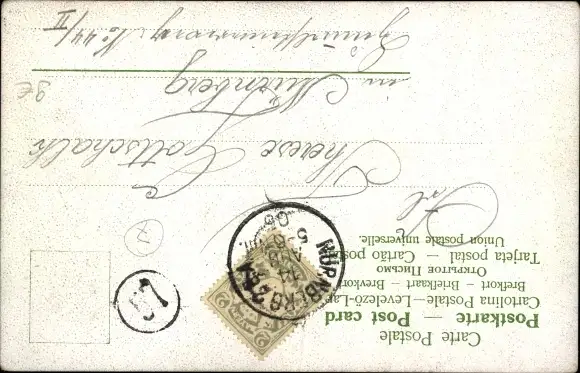 Carte Postale
Postkarte — Post card
Cartolina Postale — Levelező-Lap
Brefkort — Briefkaart — Brevkort
Открытое Письмо
Tarjeta postal — Cartão postal
Union postale universelle.
NÜRNBERG 2
14
AUG
5
05
2
2
Frl.
Therese Gottschalk
in Nürnberg
No 44/II
7
3€